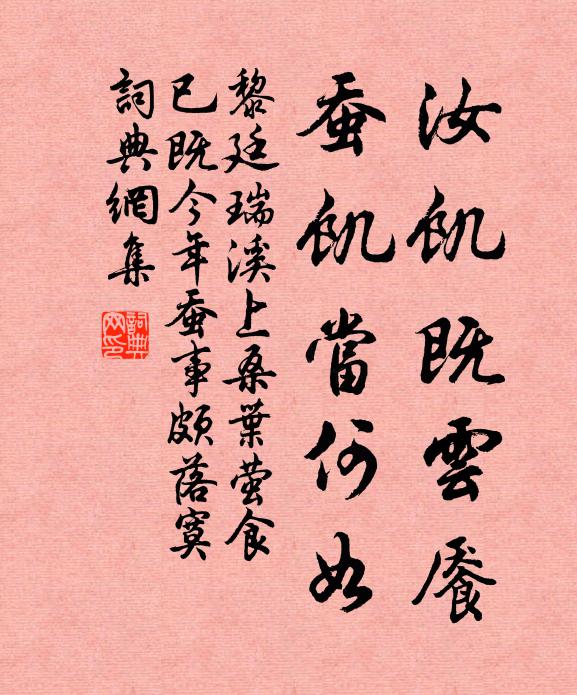 汝飢既雲饜
蚕飢當何如
黎廷瑞溪上桑葉蛍食
已既今年蚕事頗落寞
詞典網集
詞典
网印